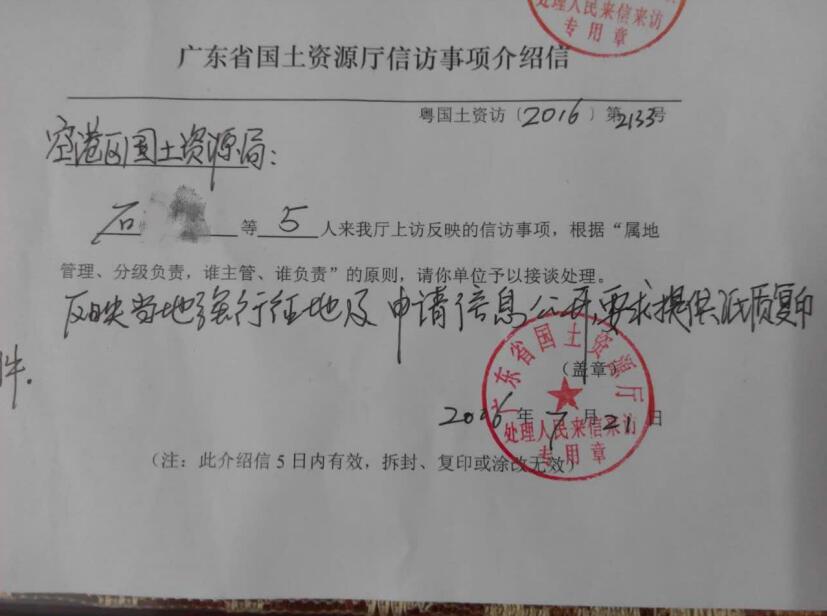 处理人民来信来访
专用章
广东省国土资源厅信访事项介绍信
粤国土资访〔2016〕第2133号
空港区国土资源局：
石 等5人来我厅上访反映的信访事项，根据“属地
管理、分级负责，谁主管、谁负责”的原则，请你单位予以接谈处理。
反映当地强行征地及申请信息公开，要求提供纸质复印
件.
（盖章）
广东省国土资源厅
2016年7月21日
处理人民来信来访
专用章
（注：此介绍信5日内有效，拆封、复印或涂改无效）